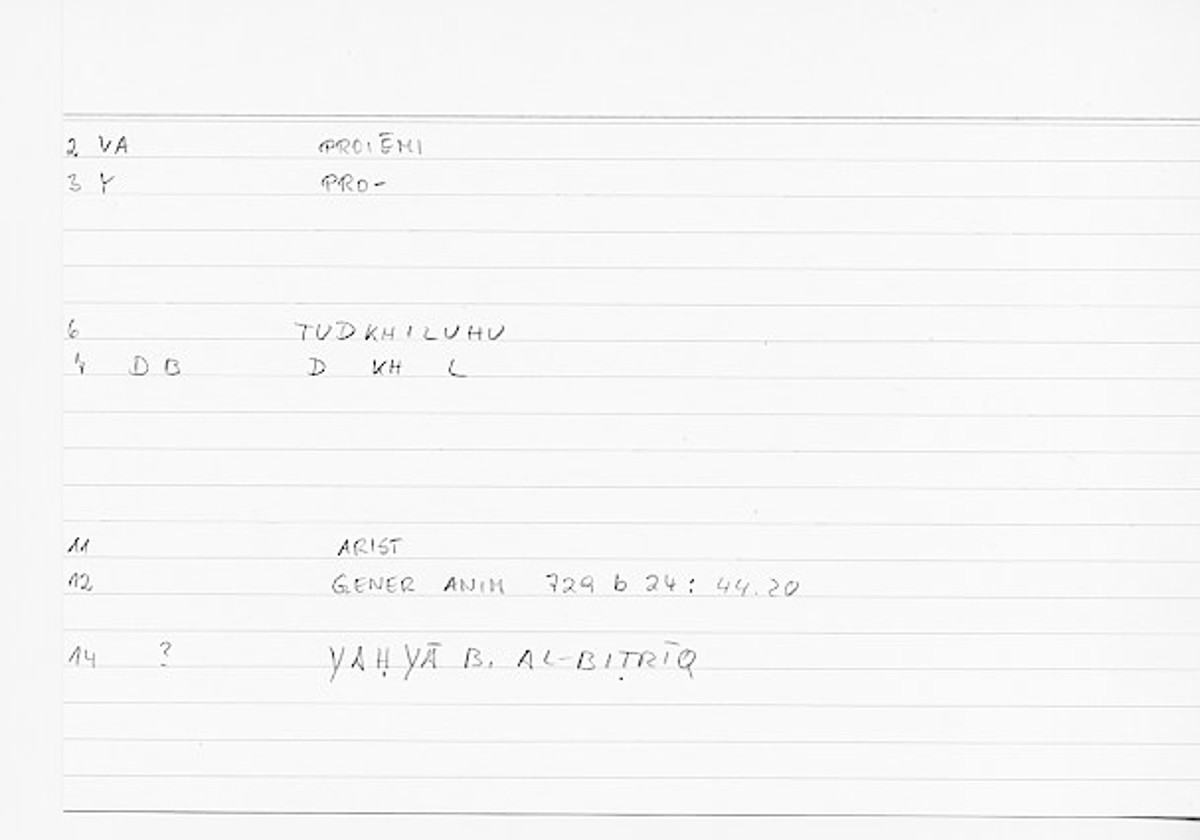 2 VA PROIĒMI
3 Y PRO-
6 TUDKHILUHU
4 DB D KH L
11 ARIST
12 GENER ANIM 729 b 24: 44.20
14 ? YAḤYĀ B. AL-BIṬRĪQ